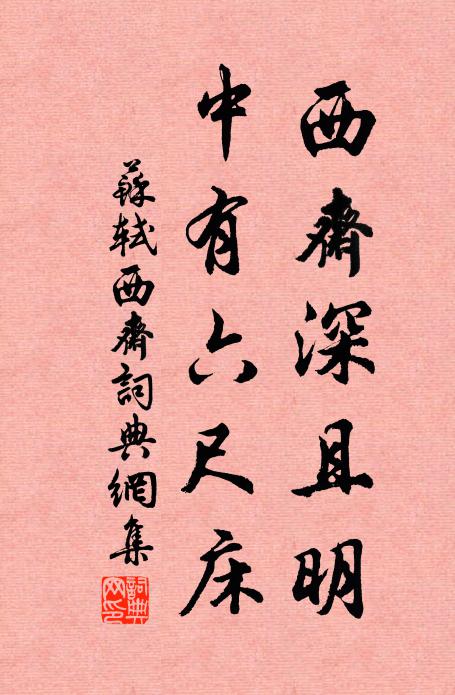 西齋深且明
中有六尺床
蘇軾西齋詞典網集
詞典網印